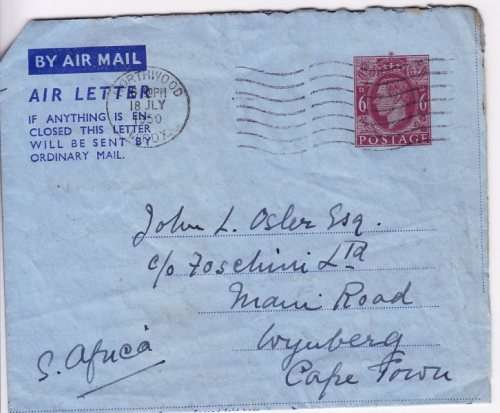 BY AIR MAIL
AIR LETTER
IF ANYTHING IS EN-
CLOSED THIS LETTER
WILL BE SENT BY
ORDINARY MAIL.
NORTHWOOD
PM
18 JLY
1950
6 D 6 D
POSTAGE
John L. Osler Esq.
c/o Foschini Ltd
Main Road
Wynberg
Cape Town
S. Africa